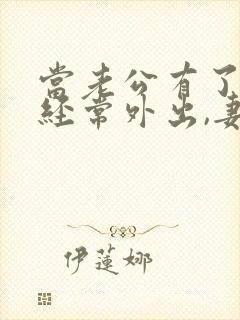 當老公有了
经常外出,妻
伊蓮娜